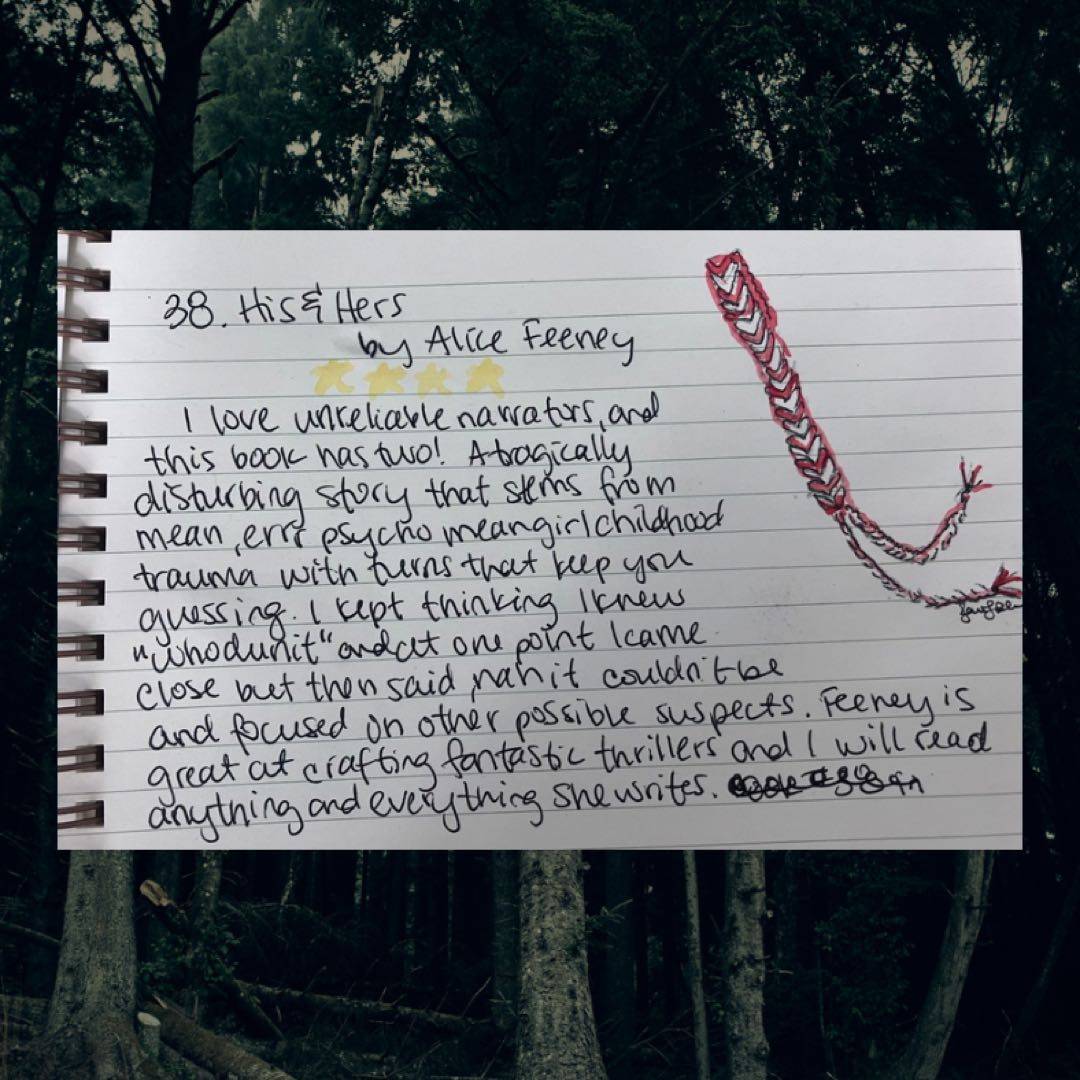 38. His & Hers
by Alice Feeney
I love unreliable narrators, and
this book has two! A tragically
disturbing story that stems from
mean, errr psycho mean girl childhood
trauma with turns that keep you
guessing. I kept thinking I knew
"whodunit" and at one point I came
close but then said, nah it couldn't be
and focused on other possible suspects. Feeney is
great at crafting fantastic thrillers and I will read
anything and everything she writes.